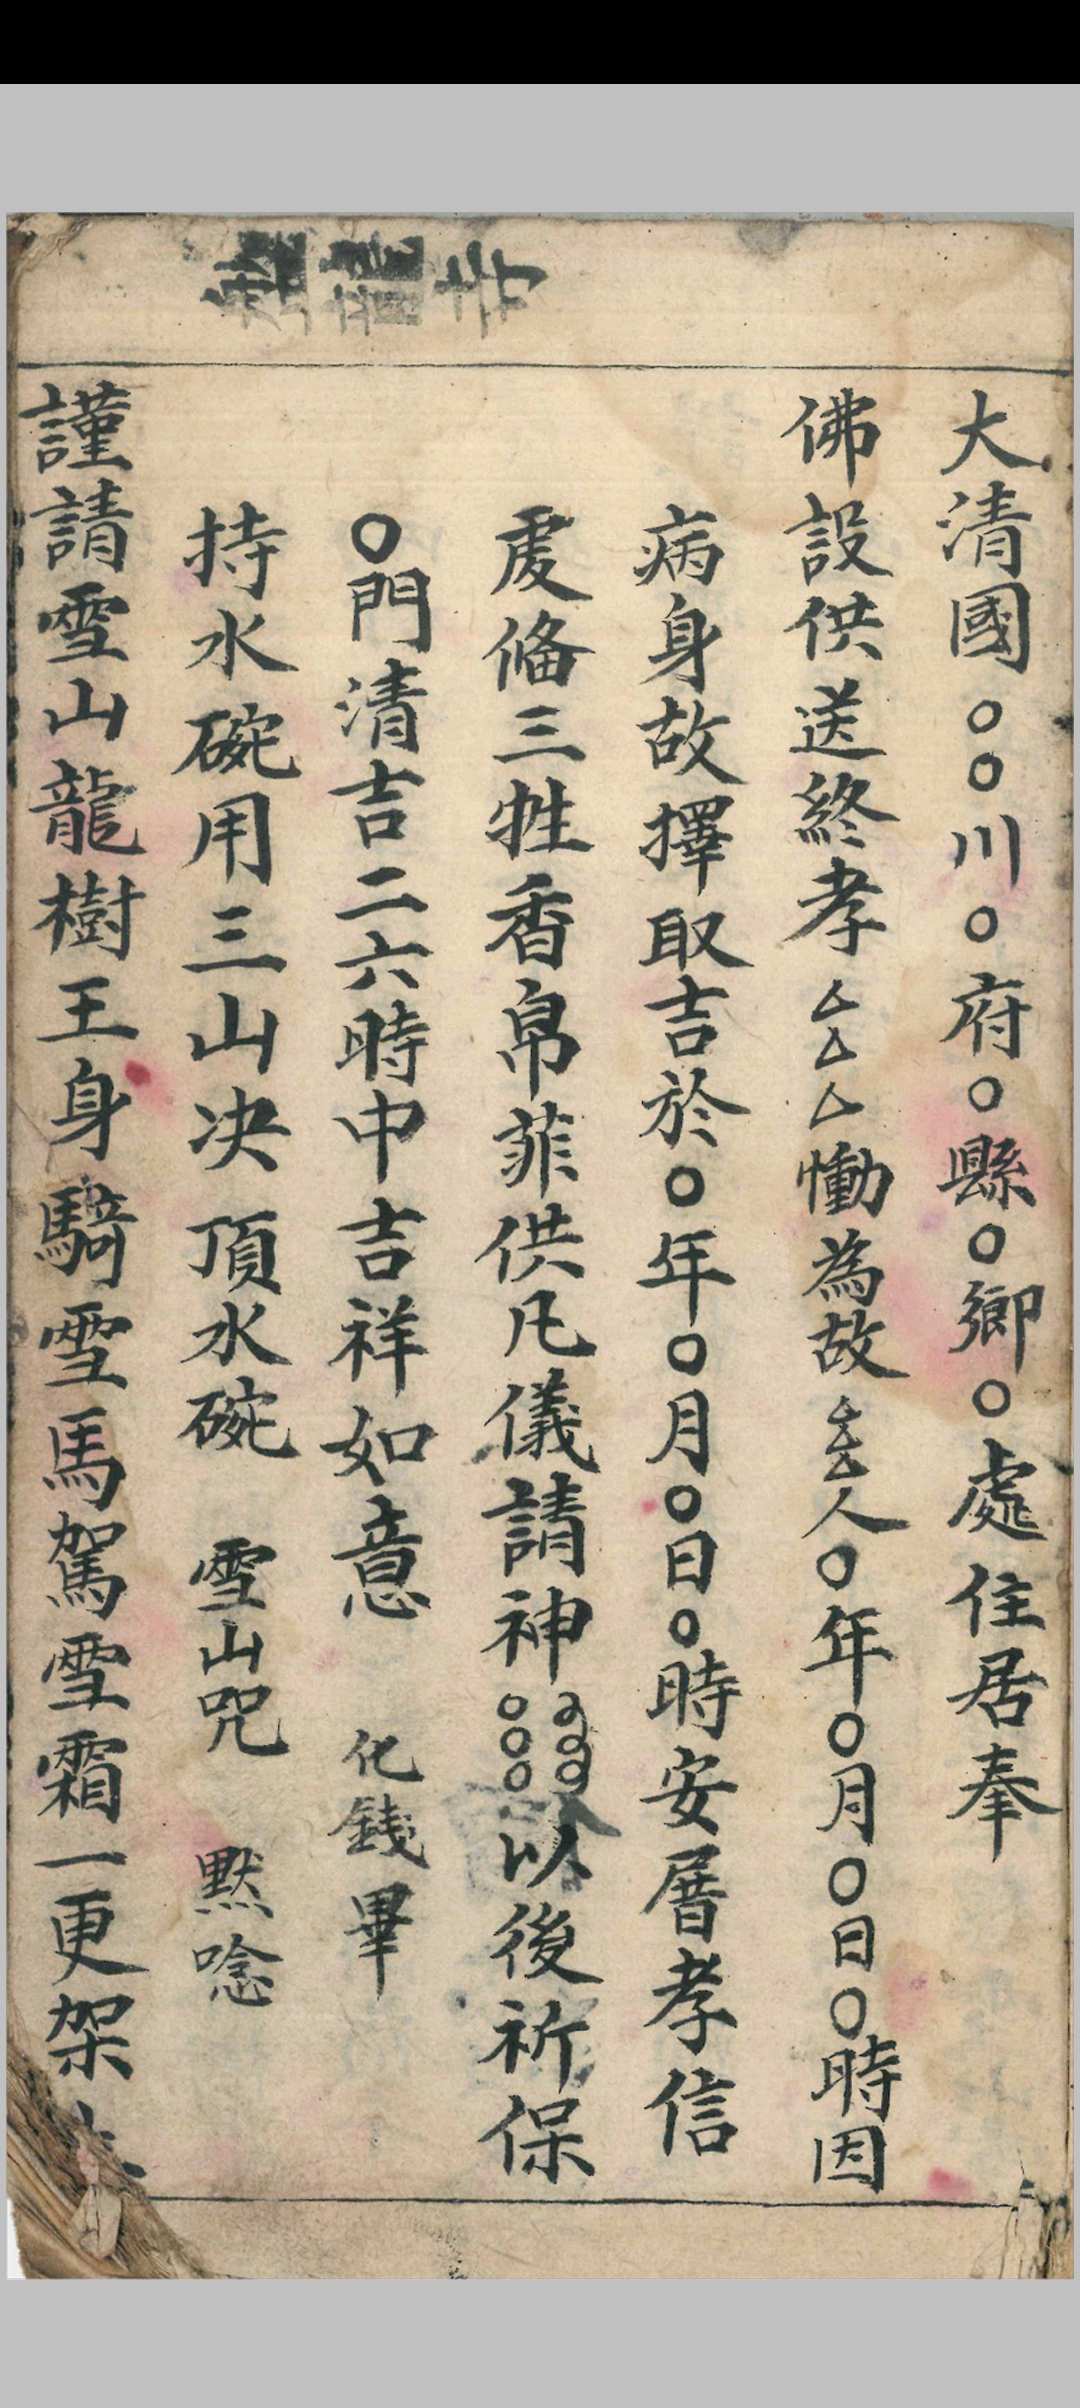 大清國○○川○府○縣○鄉○處住居奉
佛設供送終孝厶厶厶慟為故厶厶厶人○年○月○日○時因
病身故擇取吉於○年○月○日○時安厝孝信
虔俻三牲香帛菲供凡儀請神○○○○○○以後祈保
○門清吉二六時中吉祥如意 化錢畢
持水碗用三山决頂水碗 雪山咒 黙唸
謹請雪山龍樹王身騎雪馬駕雪霜一更架